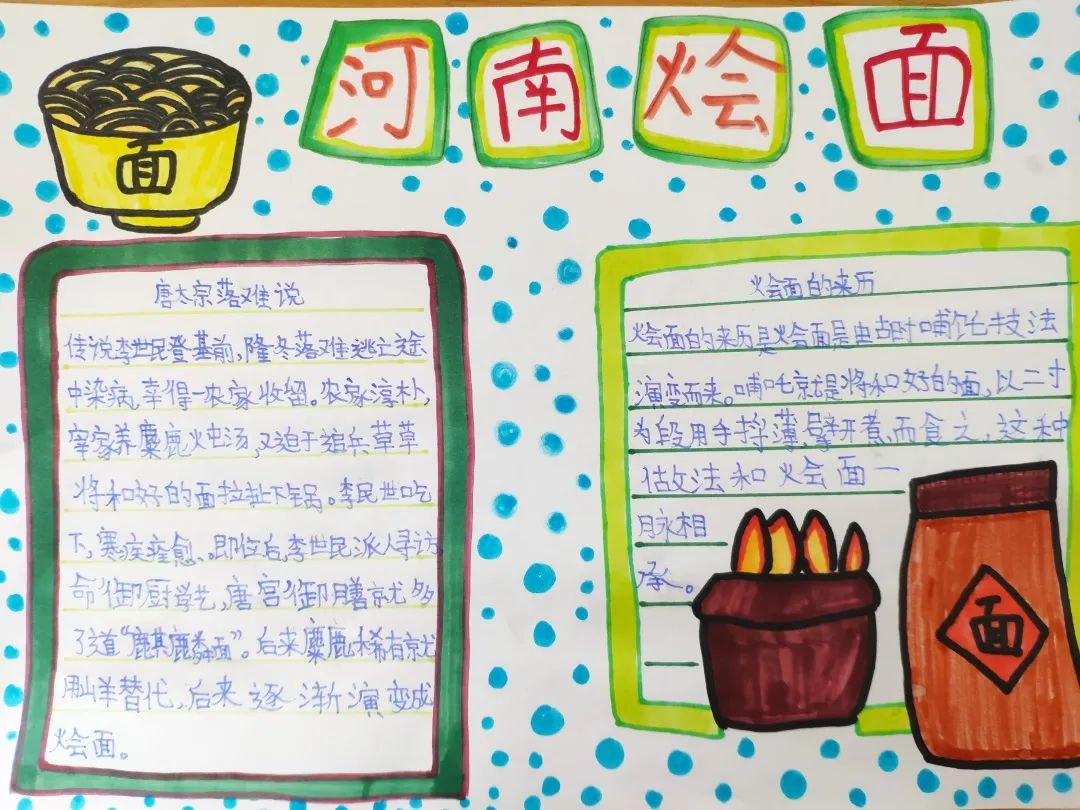 河南烩面
面
唐太宗落难说
传说李世民登基前,隆冬落难逃亡途
中染病,幸得一农家收留。农家淳朴,
宰家养麋鹿炖汤,又迫于追兵草草
将和好的面拉扯下锅。李民世吃
下,寒疾痊愈、即位后,李世民派人寻访
命御厨学艺,唐宫御膳就多
了道“麒麟面”。后来麋鹿稀有就
用山羊替代,后来逐渐演变成
烩面。
烩面的来历
烩面的来历是烩面是由古时哺饦技法
演变而来。哺饦就是将和好的面,以二寸
为段用手揉薄,擘开煮而食之,这种
做法和烩面一
脉相
承。
面